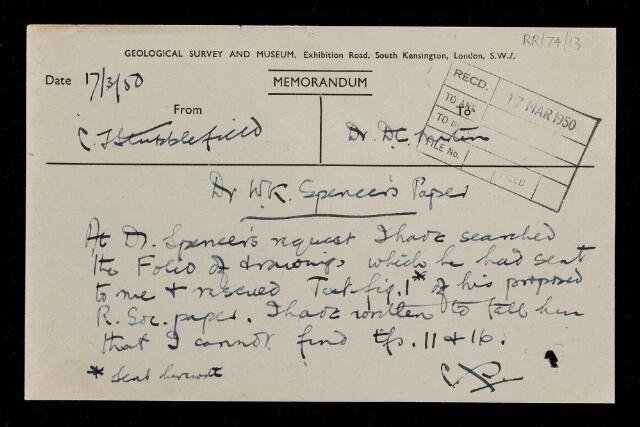 RR/74/13
GEOLOGICAL SURVEY AND MUSEUM, Exhibition Road, South Kensington, London, S.W.7.
Date 17/3/50
MEMORANDUM
RECD. 17 MAR 1950
TO ANS
TO
FILE No.
From
To
C J Stubblefield
Dr. D.C. Martin
Dr W.K. Spencer's Paper
At Dr. Spencer's request I have searched
the Folio of drawings which he had sent
to me & rescued Text fig. 1* of his proposed
R. Soc. paper. I have written to tell him
that I cannot find tfs. 11 & 16.
* Sent herewith